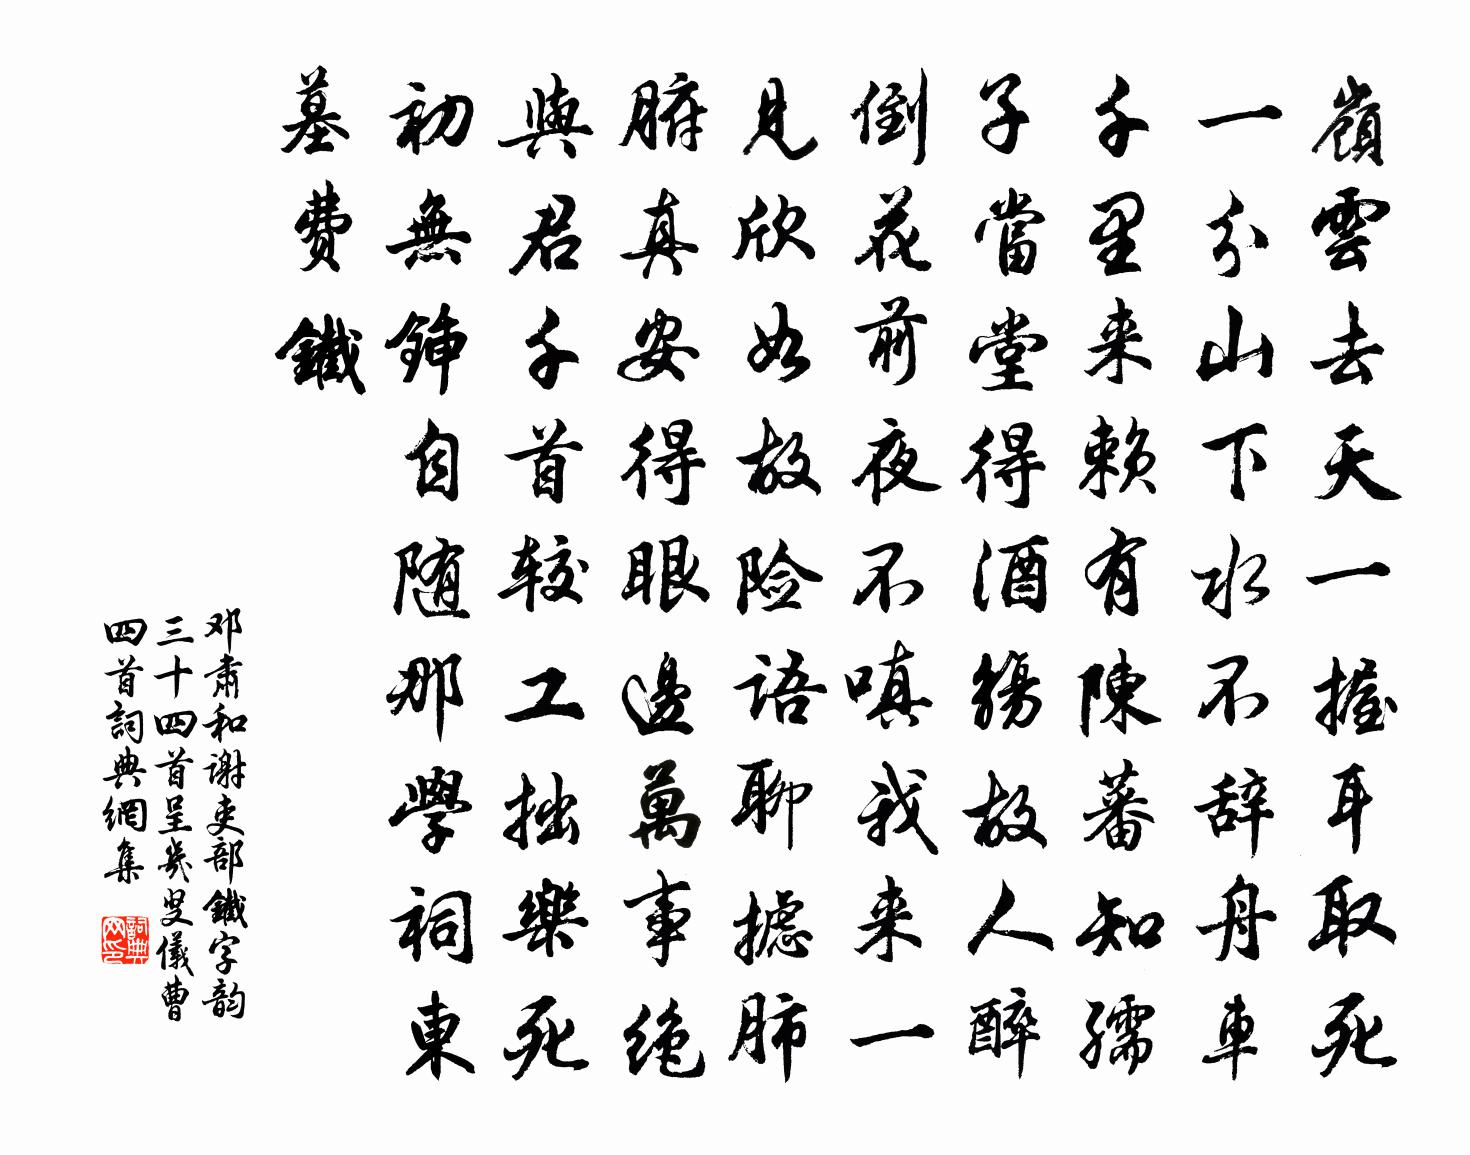 嶺雲去天一握耳取死
一分山下水不辞舟車
千里来赖有陳蕃知孺
子當堂得酒觴故人醉
倒花前夜不嗔我来一
見欣如故险语聊摅肺
腑真安得眼邊萬事绝
與君千首较工拙樂死
初無鍤自随那學祠東
墓费鐵
邓肃和谢吏部鐵字韵
三十四首呈幾叟儀曹
四首詞典網集
詞典网印